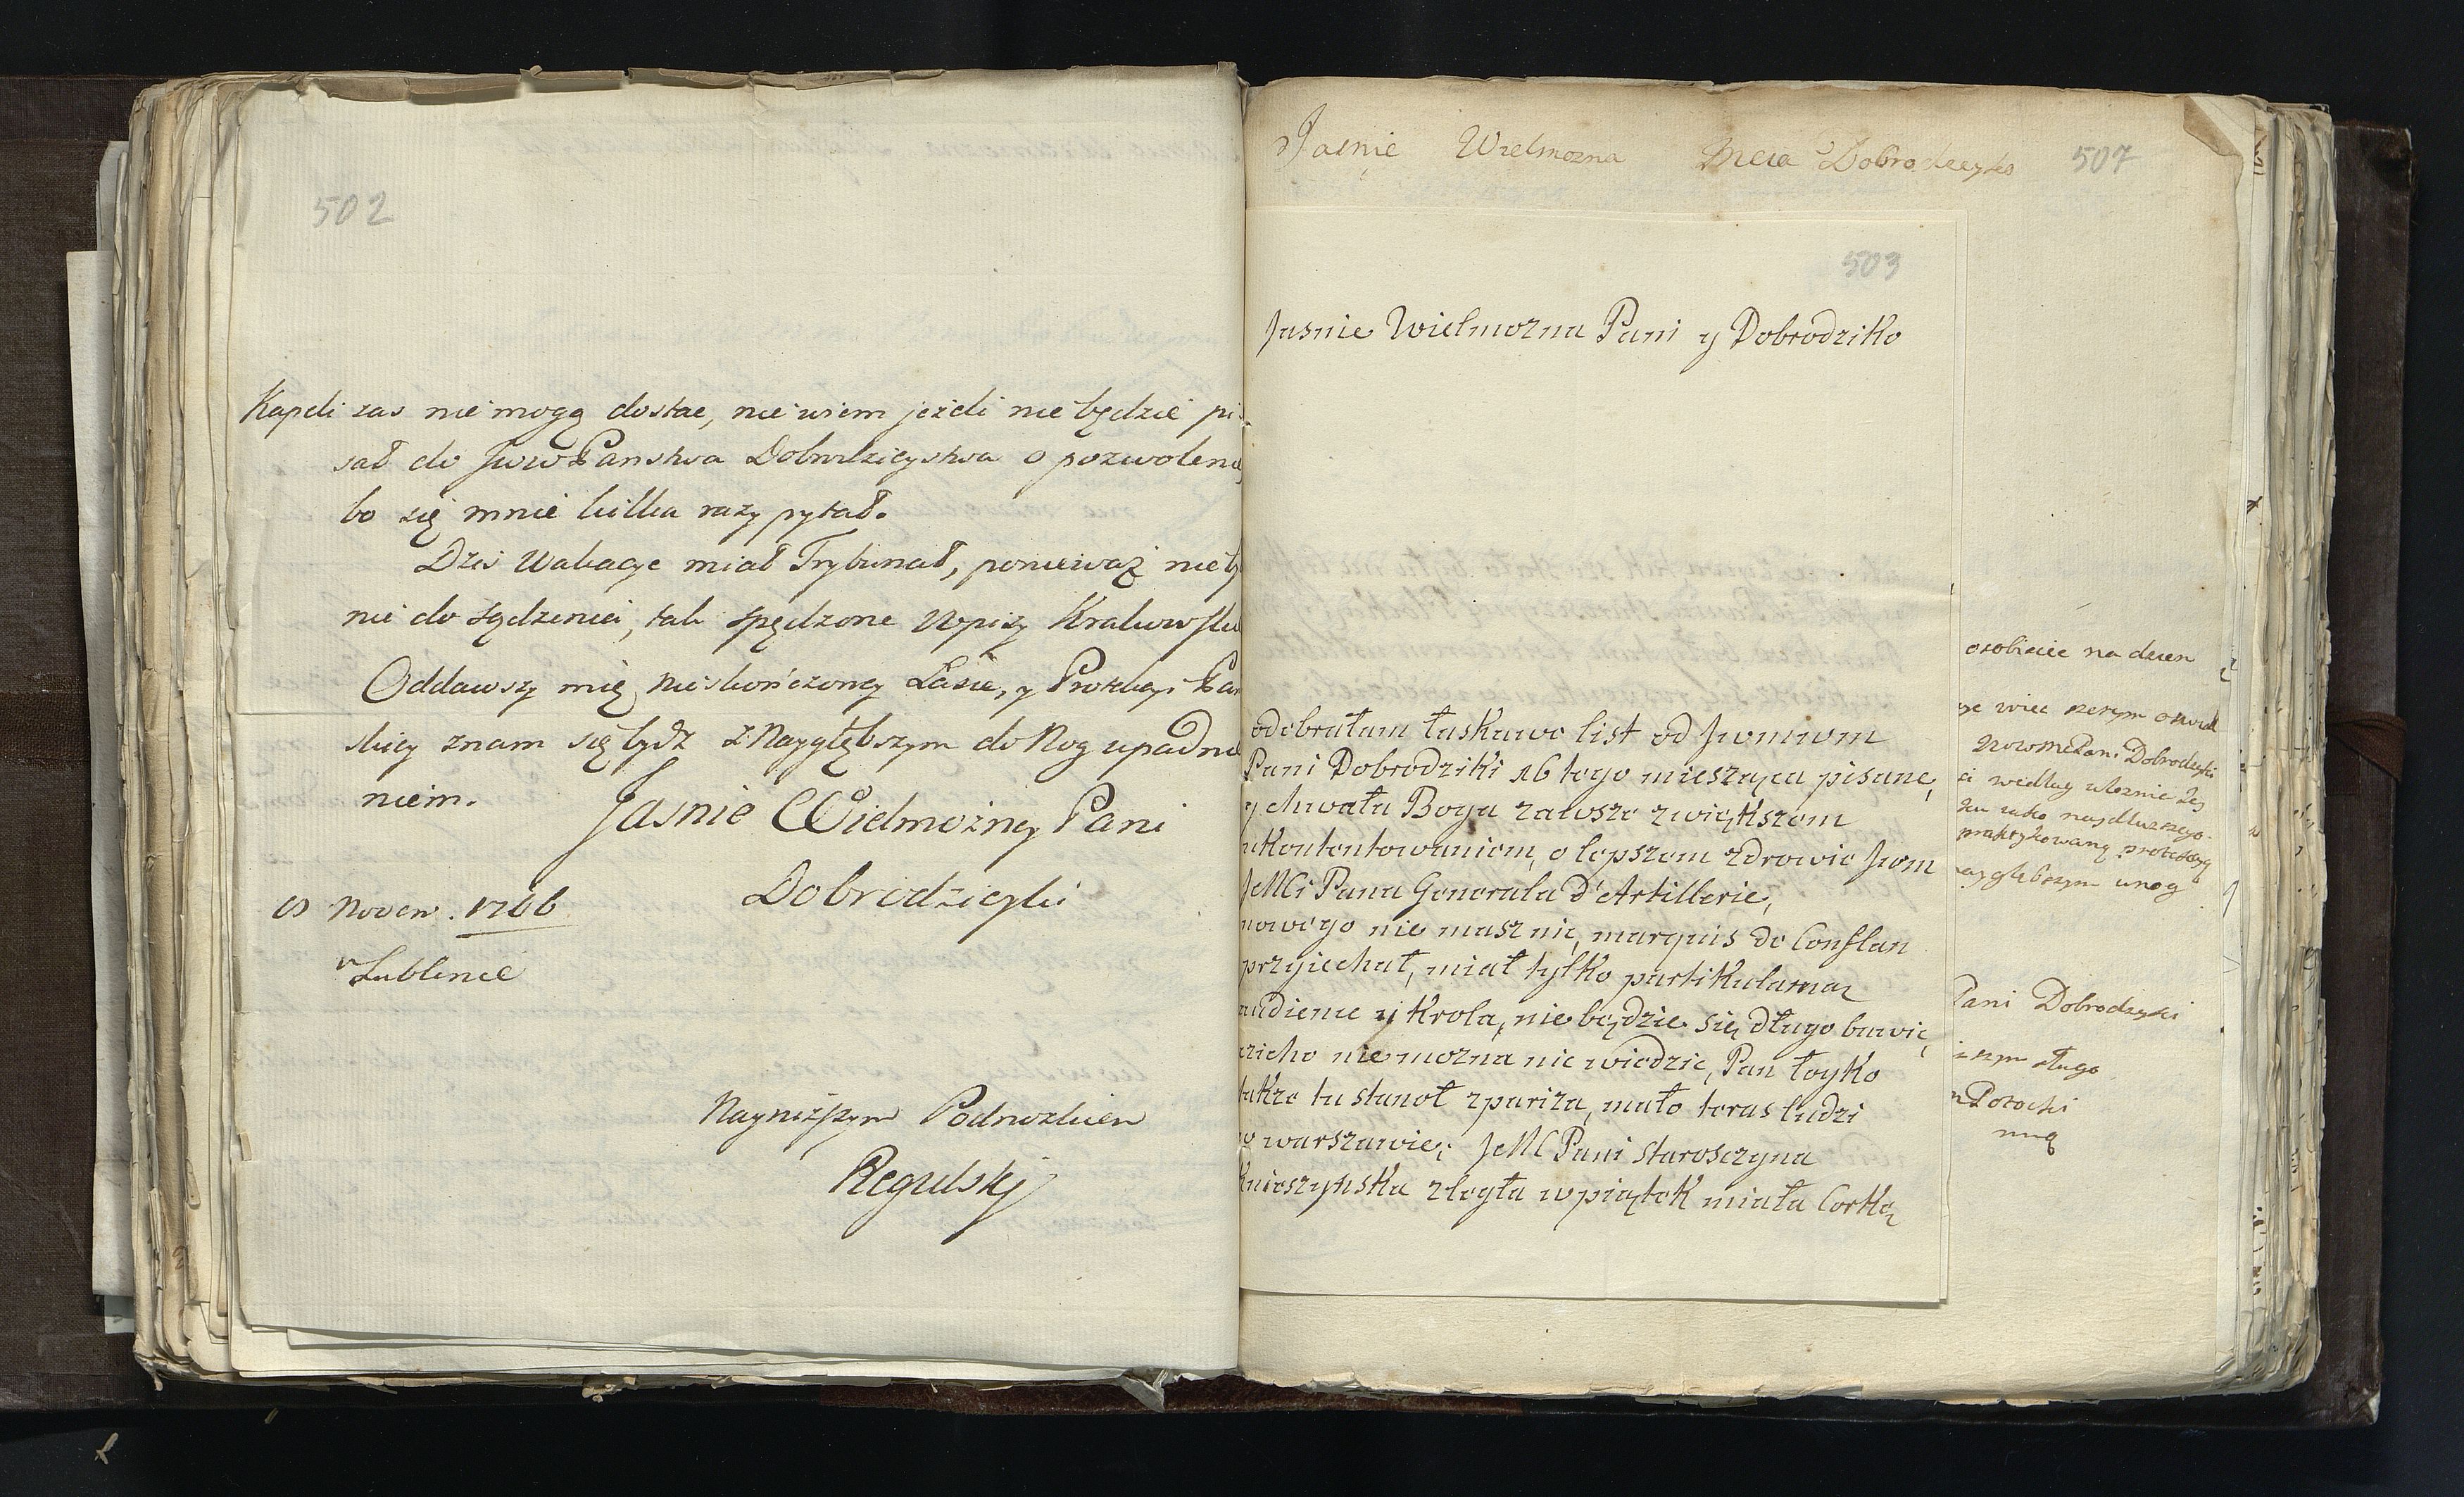 502
Kapeli zas nie mogę dostac, nie wiem jeżeli nie będzie pi-
sał do Jww Panstwa Dobrodzieystwa o pozwolenie,
bo się mnie kilka razy pytał.
Dzis Wakacye miał Trybunał, poniewaz nie by
nie do sądzenia, tak spędzone Wpisy Krakowsk
Oddawszy mię nieskończoney Łasce, y Protekcyi Pań
skiey znam się bydz z Naygłębszym do Nog upadnie
niem.
Jasnie Wielmożney Pani
Dobrodzieyki
Novem. 1766
w Lublinie
Nayniższym Podnozkiem
Regulskj
Jasnie Wielmozna Mcia Dobrodzeyko
507
503
Jasnie Wielmozna Pani y Dobrodziko
odebrałam łaskawe list od Jwmwm
Pani Dobrodziki 16 tego miesząca pisane,
y chwała Boga zawsze zwiększem
ukontentowaniem, o lepszem zdrowie Jwm
JeMCi Pana Generała d'Artillerie,
nowego nie masz nic, marquis de Conflan
przyiechał, miał tylko partikularnaz
audience y Krola, nie będzie się długo bawić,
cicho nie mozna nic wiedzic, Pan Łoyko
takze tu stanoł zpariza, mało teras ludzi
w warszawie; JeMC Pani Starosczyna
Knieszynska zległa w piątek miała Corkę
osobiscie na dzien
wiec szerym
JwwMcPani Dobrodzeyki
wedlug
iako naydluzszego
praktykowaną protekcyą
nayglebszym unog
Pani Dobrodzeyki
szym sługo
Potocki
mną